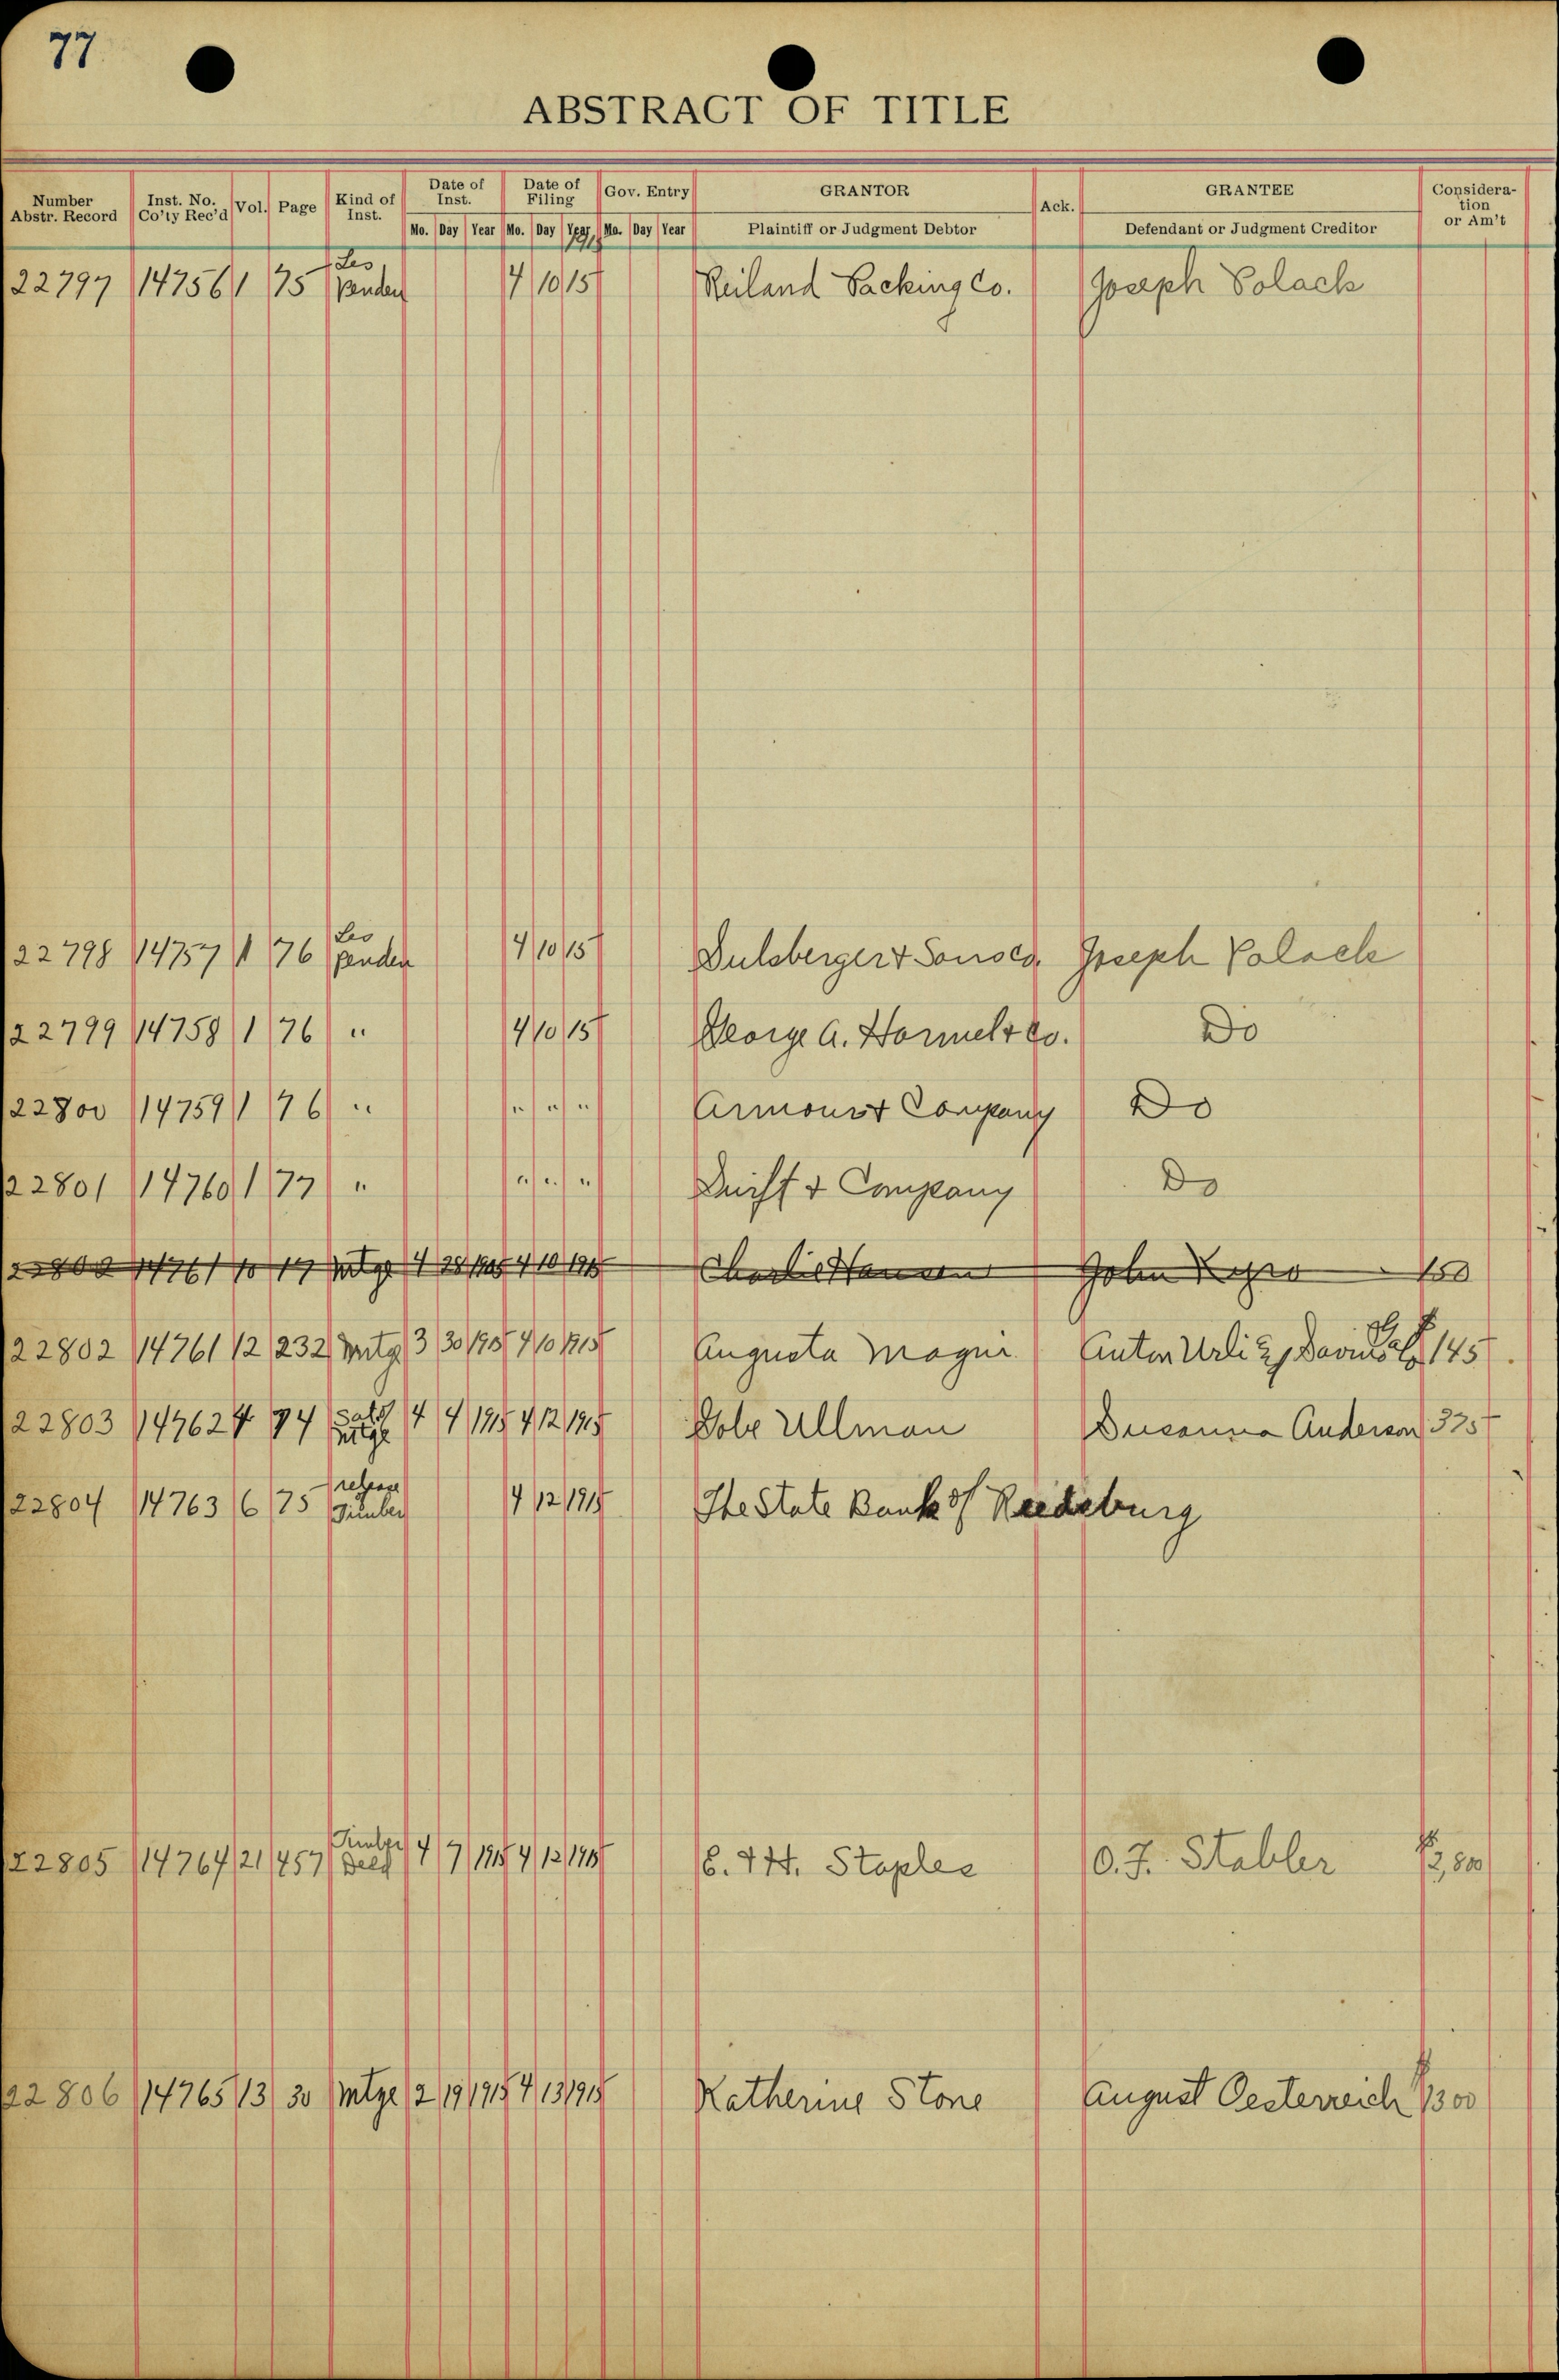 77
ABSTRACT OF TITLE
Number Abstr. Record Inst. No. Co'ty Rec'd Vol. Page Kind of Inst. Date of Inst. Date of Filing Gov. Entry GRANTOR Ack. GRANTEE Consideration or Am't
Mo. Day Year Mo. Day Year Mo. Day Year Plaintiff or Judgment Debtor Defendant or Judgment Creditor
22797 14756 1 75 Les Penden 4 10 15 Reiland Packing Co. Joseph Polack
22798 14757 1 76 Les penden 4 10 15 Sulsberger & Sons Co. Joseph Polack
22799 14758 1 76 " 4 10 15 George A. Hormel & Co. Do
22800 14759 1 76 " " " " Armour & Company Do
22801 14760 1 77 " " " " Swift & Company Do
22802 14761 10 17 mtge 4 28 1905 4 10 1915 Charlie Hansen John 150
22802 14761 12 232 Mtg 3 30 1905 4 10 1915 Augusta Anton Urli 145
22803 14762 4 74 Satf mtge 4 4 1915 4 12 1915 Ullman Susanna Anderson 335
22804 14763 6 75 release Timber 4 12 1915 The State Bank of Reedsburg
22805 14764 21 457 Timber Deed 4 7 1915 4 12 1915 Staples O. J. Stabler 2,800
22806 14765 13 30 Mtge 2 19 1915 4 13 1915 Katherine Stone August Oesterreich 1300